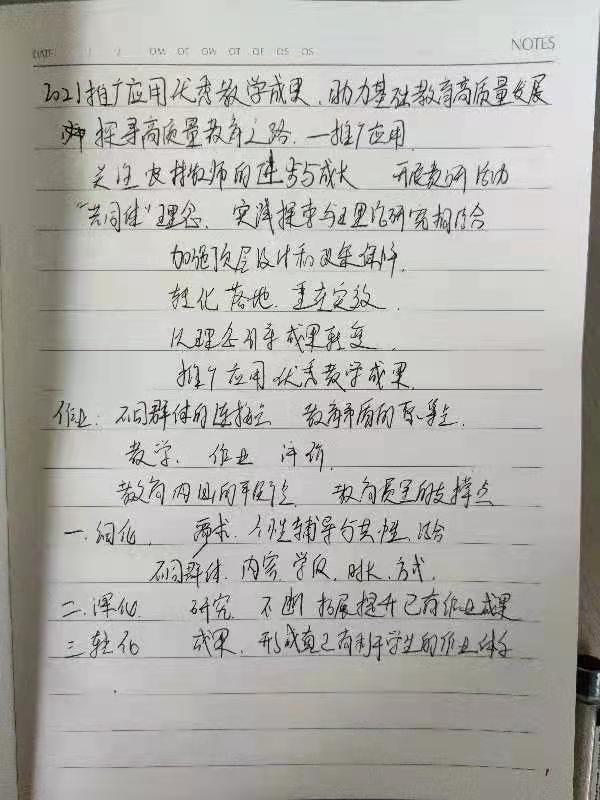 DATE / / OM OT OW OT OF OS OS NOTES
2021推广应用优秀教学成果、助力基础教育高质量发展
探寻高质量教育之路、一推广应用
关注农村教师的进步与成长 开展教研活动
"共同体"理念、实践探索与理论研究相结合
加强顶层设计和政策保障.
转化落地 重在实效
以理念引导成果转变
推广应用优秀教学成果
作业: 不同群体的连接点 教育矛盾的聚集点
教学、作业 评价.
教育内外的平衡点 教育质量的支撑点
一.细化 需求. 个性辅导与共性结合
不同群体. 内容 学段 时长. 方式.
二.深化 研究. 不断拓展提升已有作业成果
三.转化 成果. 形成真正有利于学生的作业体系